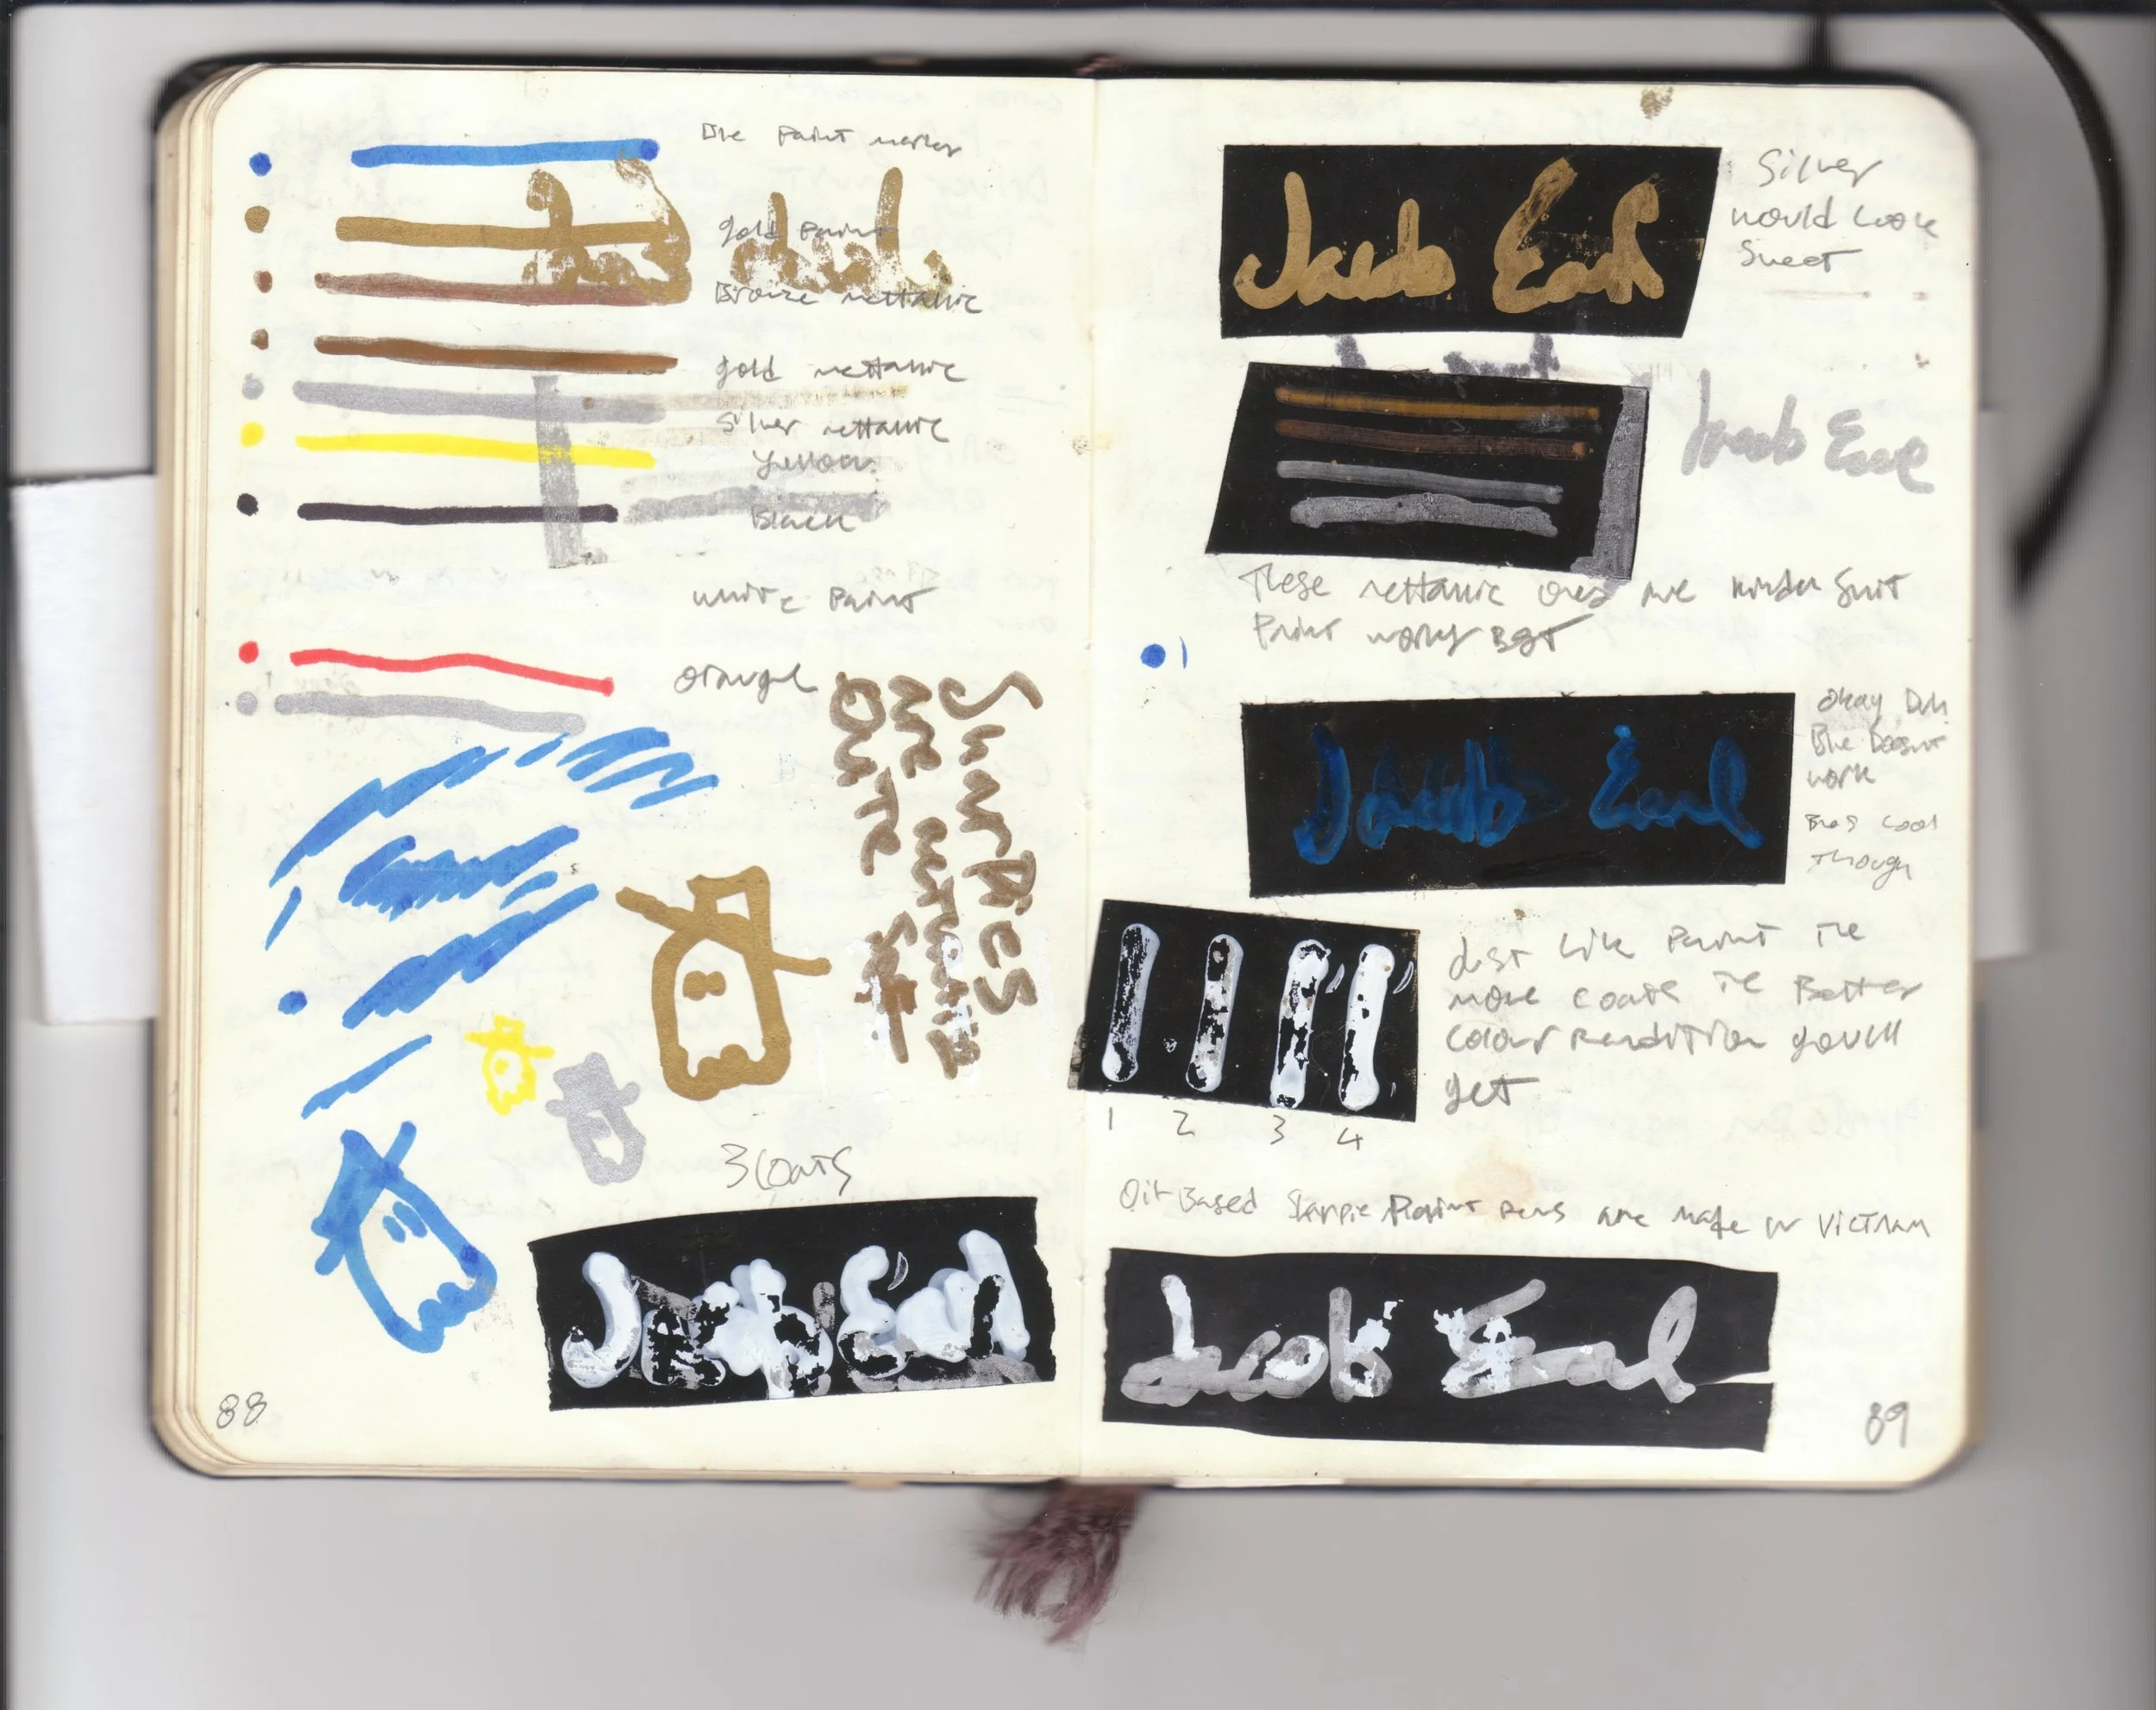 Blue Paint marker
gold Paint
Bronze mettalic
gold mettalic
Silver mettalic
Yellow
Black
white Paint
orange
Sharpies
are
Quite
3 Coats
88
Jacob Earl
Silver
would Look
Sweet
Jacob Earl
These mettalic ones are kinda Shit
Paint works Best
Jacob Earl
Okay Duh
Blue Doesnt
work
Though
Just Like Paint The
more coats The Better
Colour Rendition you'll
get
1 2 3 4
Oil Based Sharpie Paint pens are made in Vietnam
Jacob Earl
89